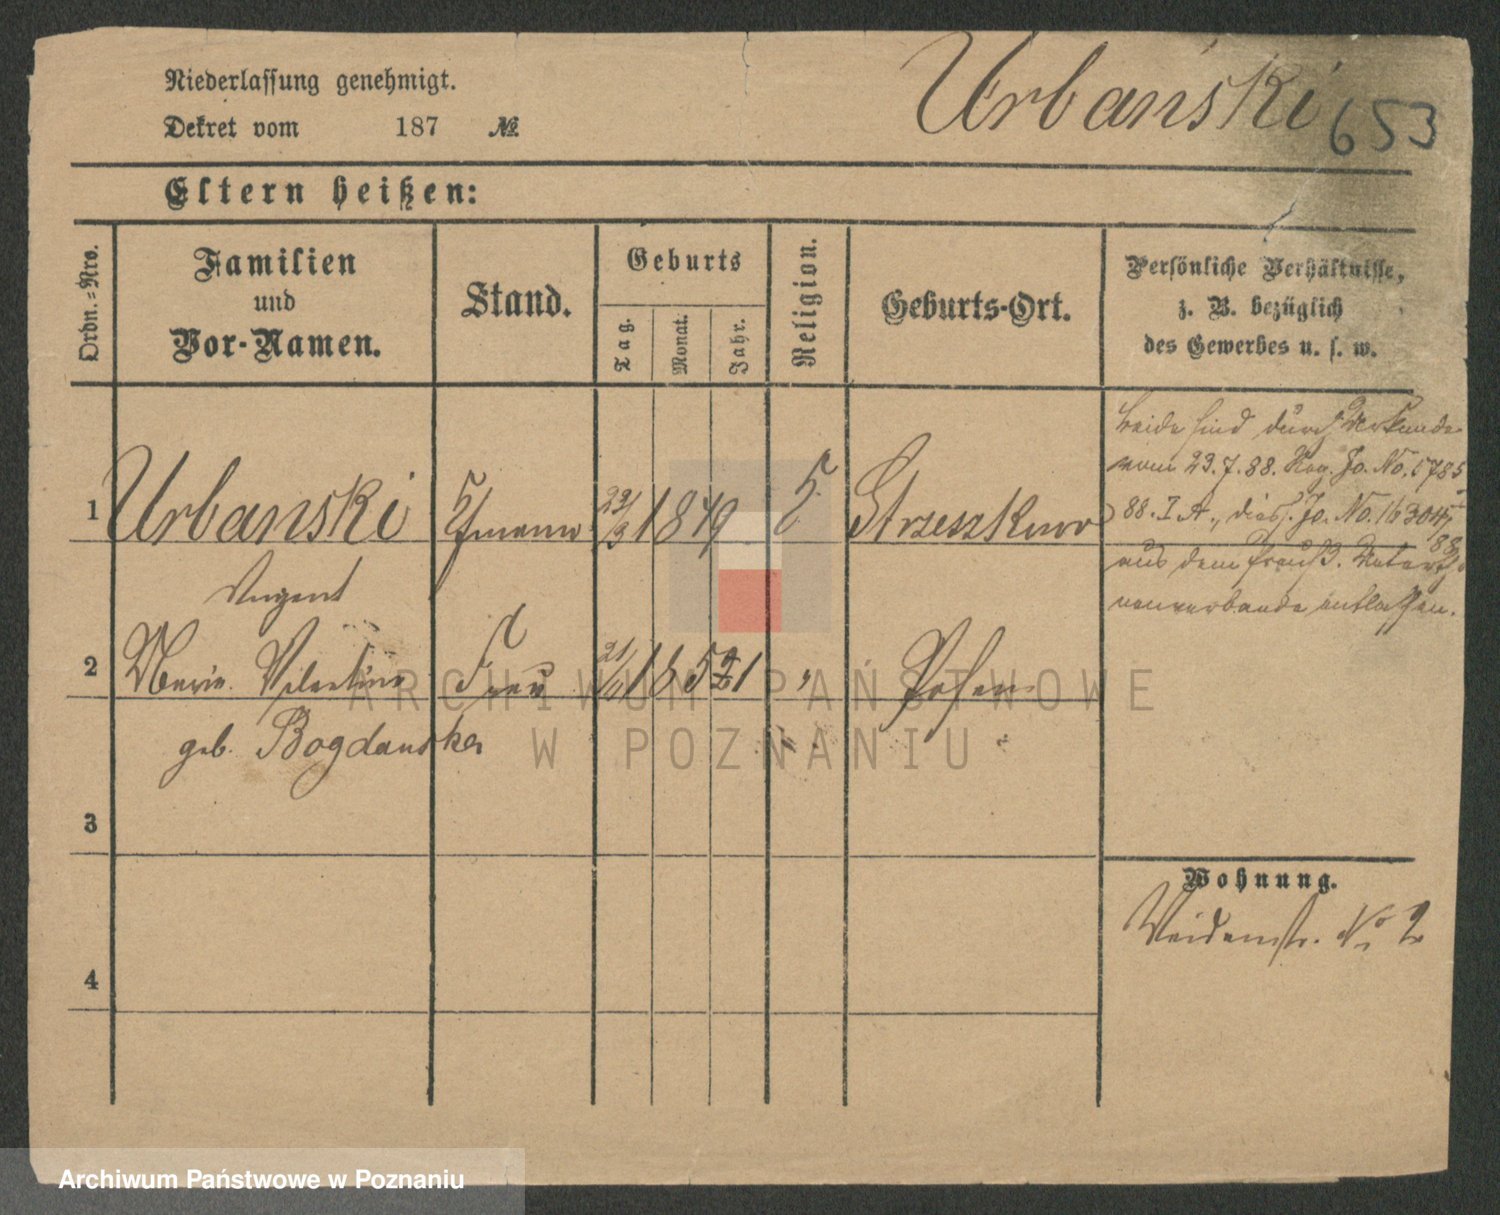 Niederlassung genehmigt.
Urbański 653
Dekret vom 187 №
Eltern heißen:
Ordn.=Nro.
Familien
und
Vor-Namen.
Stand.
Geburts
Tag.
Monat.
Jahr.
Religion.
Geburts-Ort.
Persönliche Verhältnisse,
z. B. bezüglich
des Gewerbes u. s. w.
beide sind durch Urkunde
vom 23.7.88. Reg. Jo. No. 1785
88. I A., diess. Jo. No. 16304/
88
aus dem Preuß. Untertha
nenverbande entlassen.
1 Urbanski 1849 Strzeszkowo
2 Marie Valentine Frau 21/11 1852 " Posen
geb. Bogdanska
3
4
Wohnung.
Weidenstr. No 2
ARCHIWUM PAŃSTWOWE
W POZNANIU
Archiwum Państwowe w Poznaniu